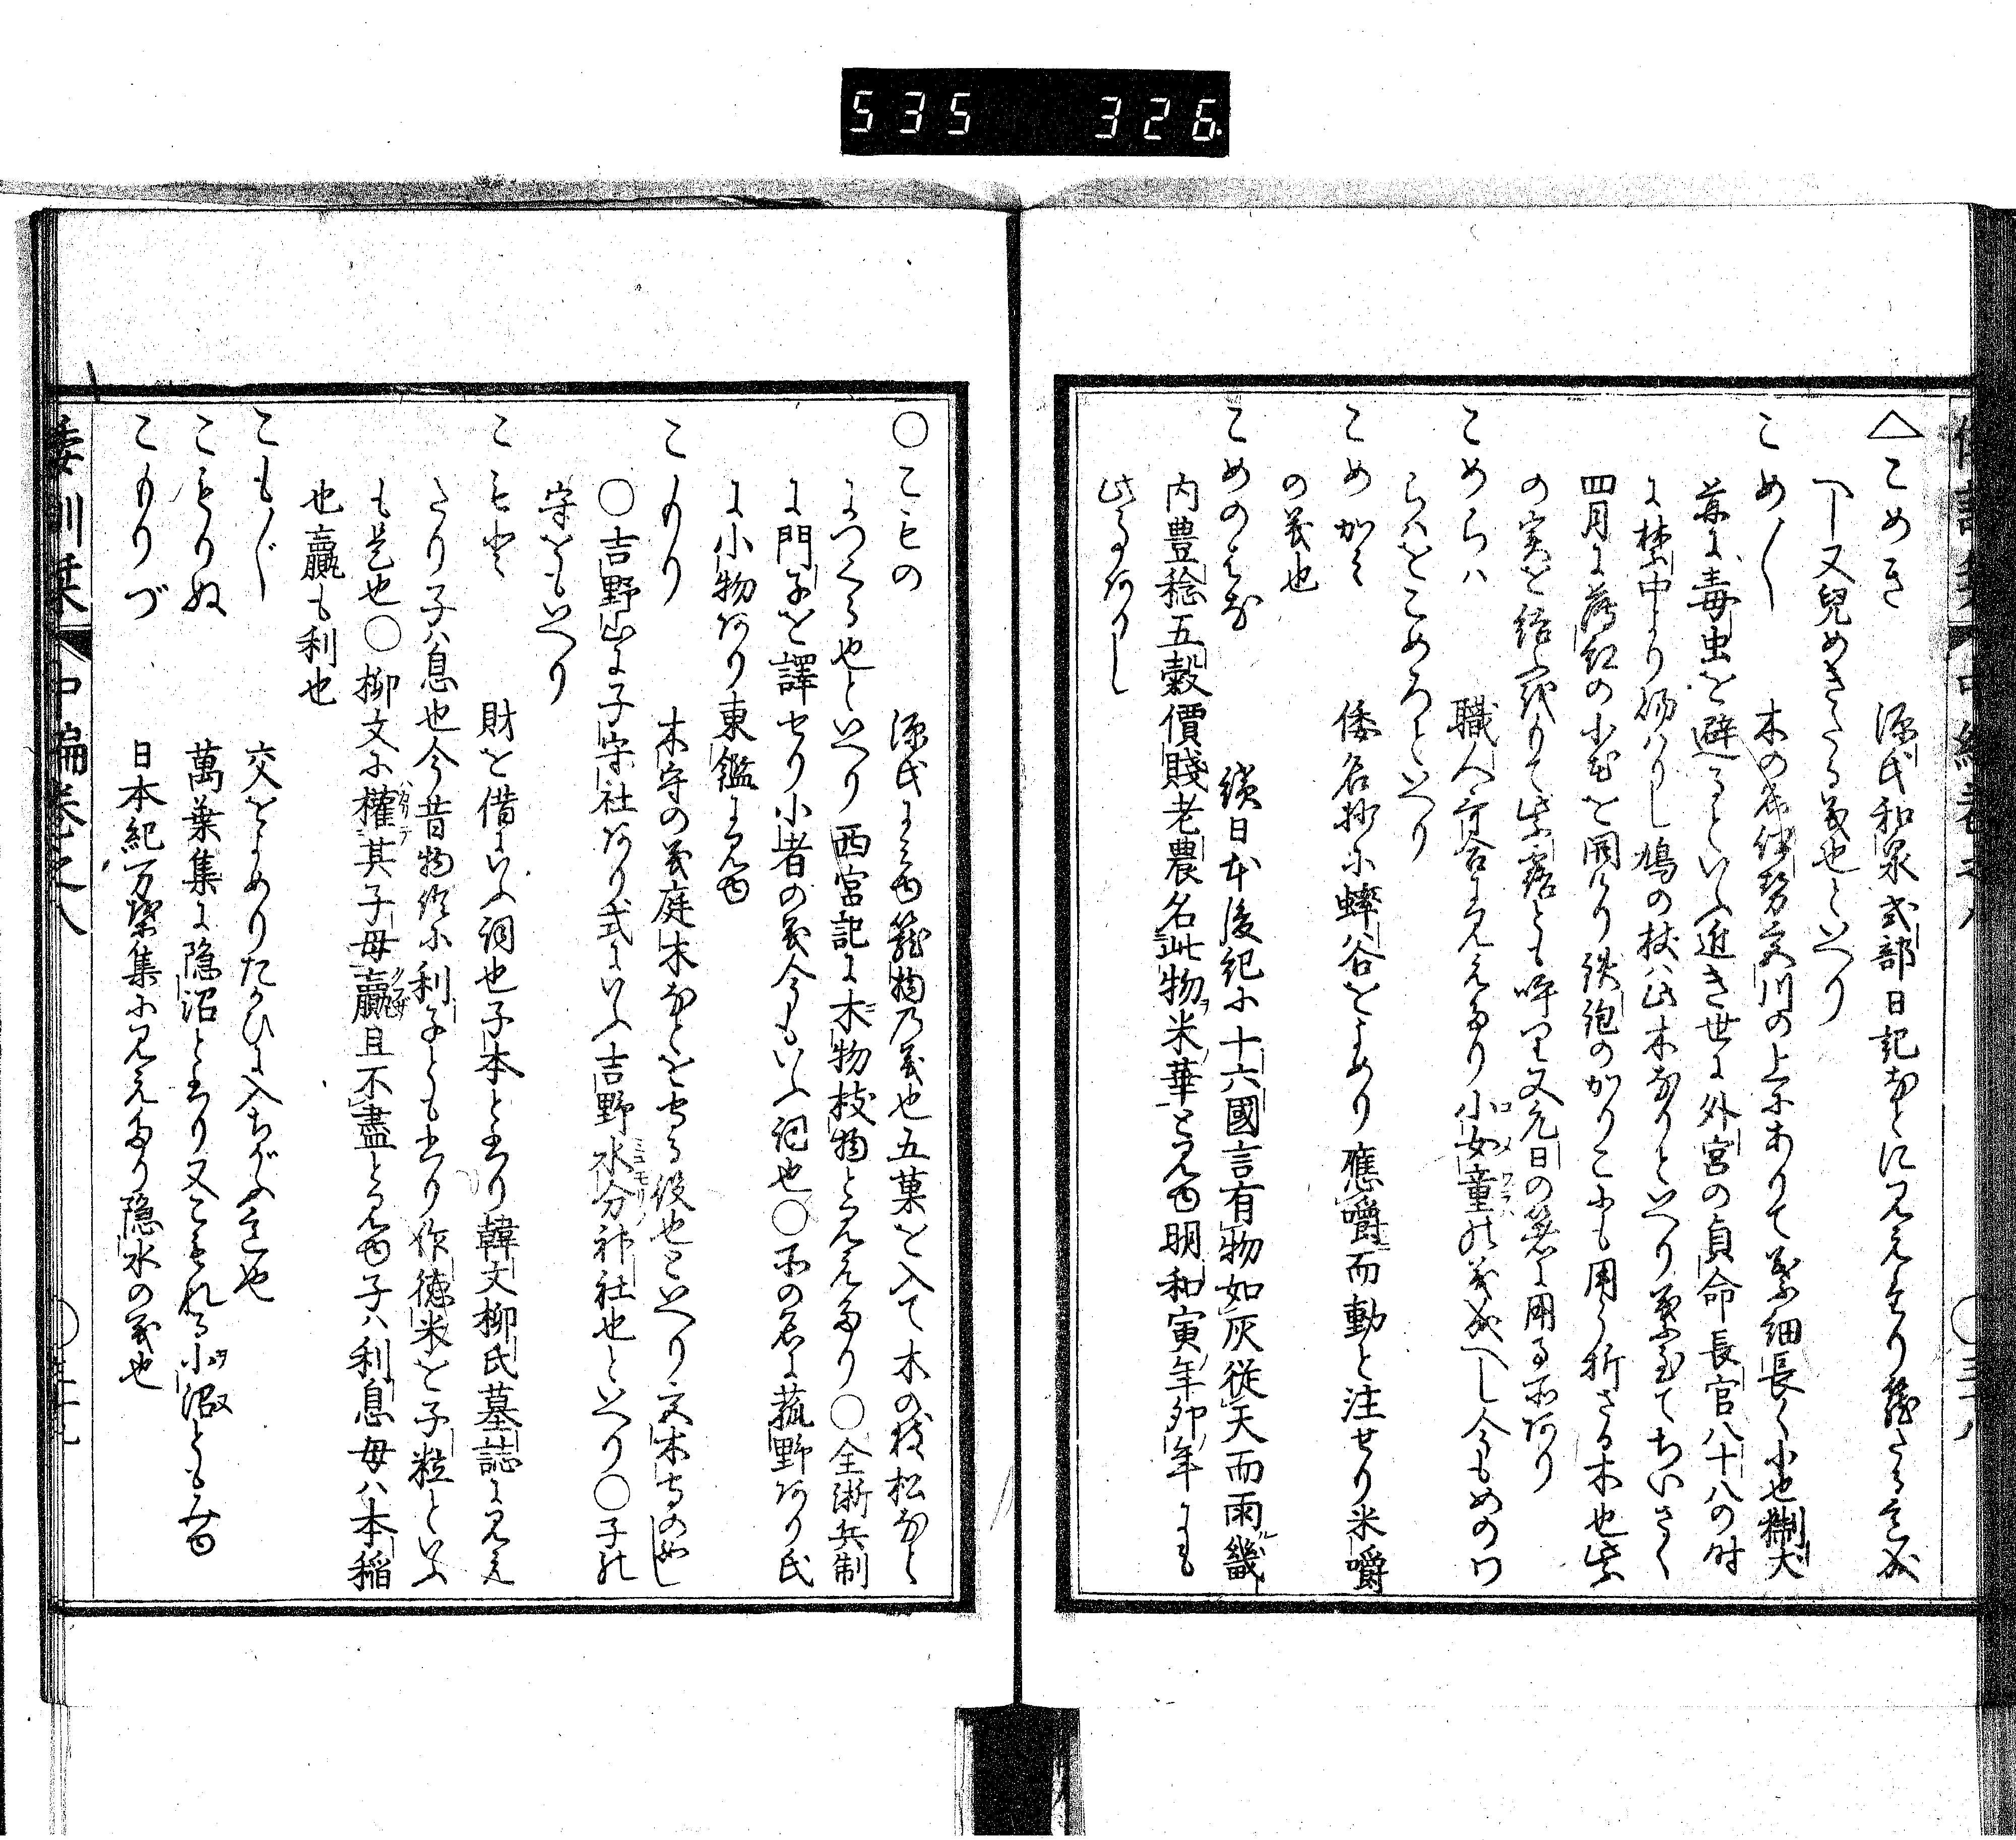 535 326
△こめき 源氏和泉式部日記などに見えたり籠たる意成
へし又兒めきたる義也といへり
こめ〳〵 木の名伊勢宮川の上にありて葉細長く小也猘犬
并に毒虫を避るといふ近き世に外宮の貞命長官八十八の時
に禁中より賜はりし鳩の杖ハ此木なりといへり葉至てちいさく
四月に薄紅の小花を開けり鉄砲のかりこにも用う折さる木也紫
の実を結ふ故りて紫露とも呼り又元日の箸に用る所あり
こめらハ 職人合に見えたり小女童の義成へし今もめのわ
らハをこめろといへり
こめかみ 倭名抄に蟀谷をよめり應嚼而動と注せり米嚼
の義也
こめのはな 續日本後紀に十六國言有物如灰從天而雨畿
内豊稔五穀價賤老農名此物米華と見ゆ明和寅年卯年にも
此事ありし
倭訓栞 中編巻之八
○こもの 源氏にみゆ籠物乃義也五菓を入て木の枝松なと
につくる也といへり西宮記に木物枝物と見えたり○全浙兵制
に門子を譯せり小者の義今もいふ詞也○所の名に菰野あり氏
に小物あり東鑑に見ゆ
こもり 木守の義庭木なとを守る役也といへり又木守のめし
○吉野山に子守社あり式にいふ吉野水分神社也といへり○子の
守をもいへり
こもと 財を借にいふ詞也子本と書り韓文柳氏墓誌に見え
たり子ハ息也今昔物語に利子とも書り作徳米を子粒といふ
も是也○柳文に權其子母贏且不盡と見ゆ子ハ利息母ハ本稲
也贏も利也
こも〴〵 交をよめりたかひに入ちがふ意也
こもりぬ 萬葉集に隠沼と書り又こもれる小沼ともみゆ
こもりづ 日本紀万葉集に見えたり隠水の義也
倭訓栞 中編巻之八